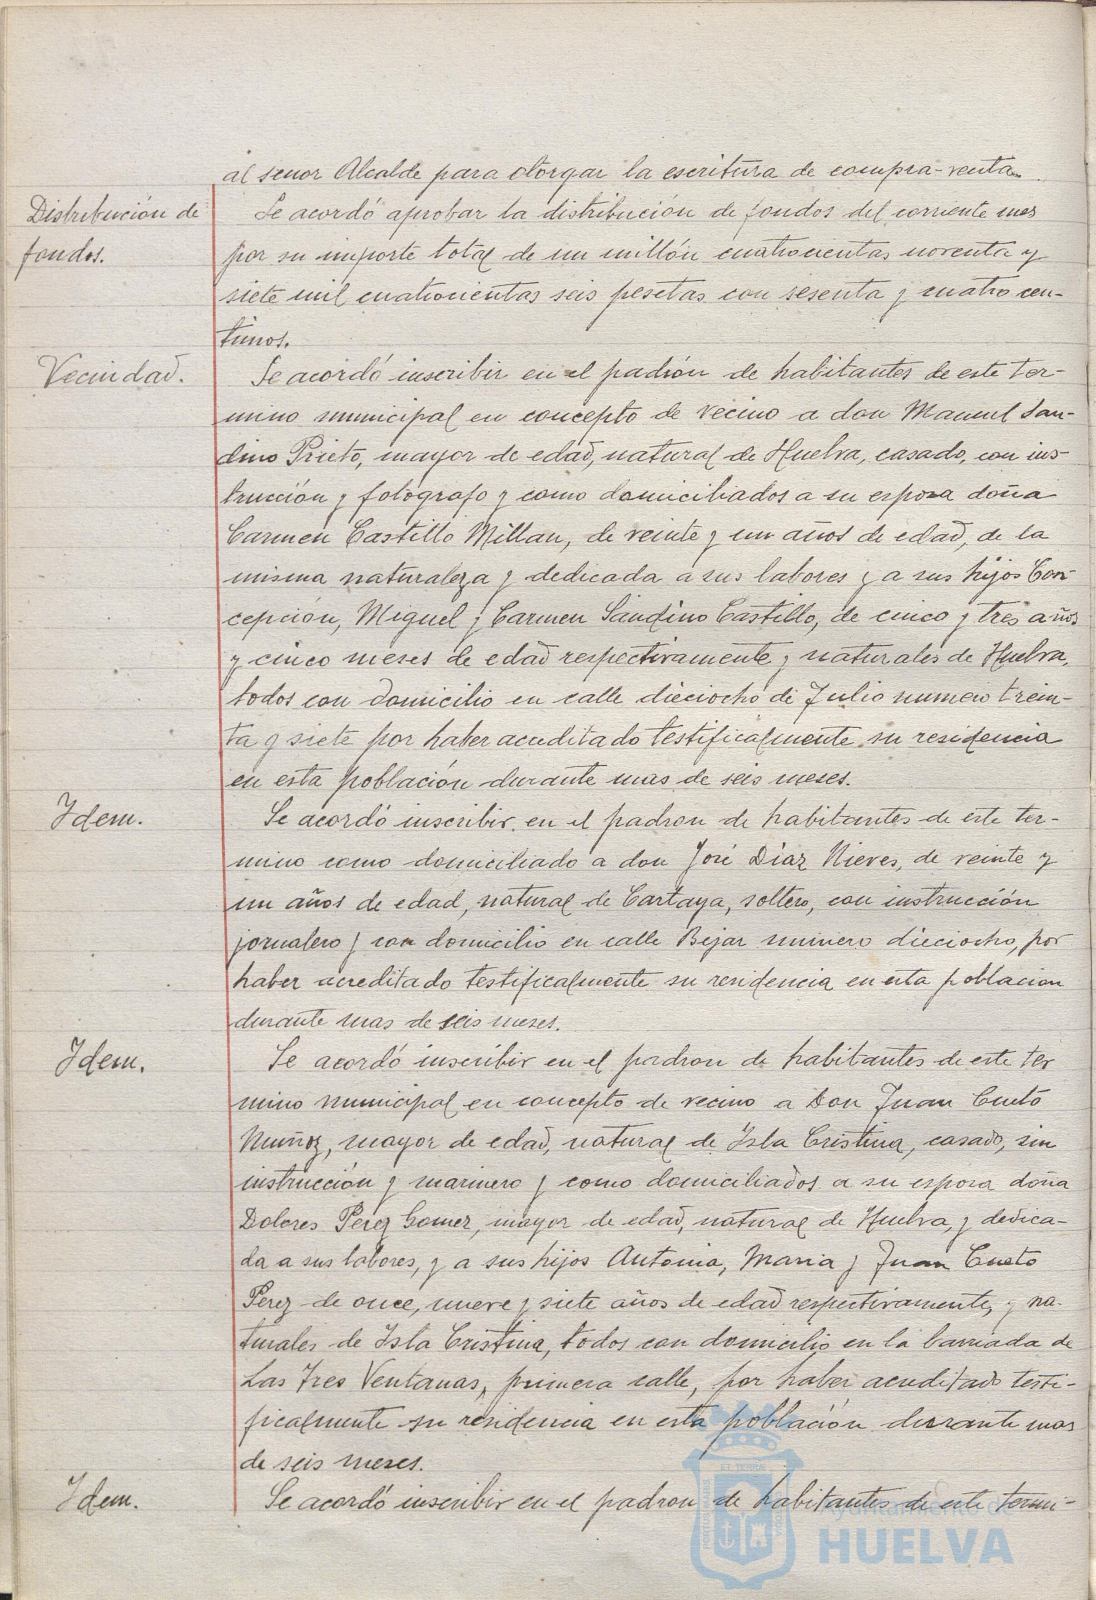 al señor Alcalde para otorgar la escritura de compra-venta.
Distribución de
fondos.
Se acordó aprobar la distribución de fondos del corriente mes
por su importe total de un millón cuatrocientas noventa y
siete mil cuatrocientas seis pesetas con sesenta y cuatro cen-
timos.
Vecindad.
Se acordó inscribir en el padrón de habitantes de este ter-
mino municipal en concepto de vecino a don Manuel San-
dino Prieto, mayor de edad, natural de Huelva, casado, con ins-
trucción y fotógrafo y como domiciliados a su esposa doña
Carmen Castillo Millan, de veinte y un años de edad, de la
misma naturaleza y dedicada a sus labores y a sus hijos Con-
cepción, Miguel y Carmen Sandino Castillo, de cinco y tres años
y cinco meses de edad respectivamente y naturales de Huelva,
todos con domicilio en calle dieciocho de Julio numero trein-
ta y siete por haber acreditado testificalmente su residencia
en esta población durante mas de seis meses.
Idem.
Se acordó inscribir en el padron de habitantes de este ter-
mino como domiciliado a don José Díaz Nieves, de veinte y
un años de edad, natural de Cartaya, soltero, con instrucción
jornalero y con domicilio en calle Bejar numero dieciocho, por
haber acreditado testificalmente su residencia en esta poblacion
durante mas de seis meses.
Idem.
Se acordó inscribir en el padron de habitantes de este ter
mino municipal en concepto de vecino a Don Juan Cueto
Muñoz, mayor de edad, natural de Isla Cristina, casado, sin
instrucción y marinero y como domiciliados a su esposa doña
Dolores Perez Gomez, mayor de edad, natural de Huelva, y dedica-
da a sus labores, y a sus hijos Antonia, Maria y Juan Cueto
Perez de once, nueve y siete años de edad respectivamente, y na-
turales de Isla Cristina, todos con domicilio en la barriada de
Las Tres Ventanas, primera calle, por haber acreditado testi-
ficalmente su residencia en esta población durante mas
de seis meses.
Idem.
Se acordó inscribir en el padron de habitantes de este termi-
Ayuntamiento de
HUELVA